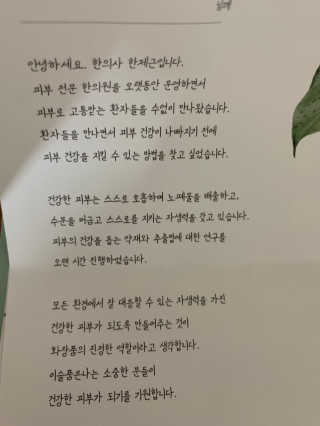 안녕하세요. 한의사 한제근입니다.
피부 전문 한의원을 오랫동안 운영하면서
피부로 고통받는 환자들을 수없이 만나왔습니다.
환자들을 만나면서 피부 건강이 나빠지기 전에
피부 건강을 지킬 수 있는 방법을 찾고 싶었습니다.
건강한 피부는 스스로 호흡하며 노폐물을 배출하고,
수분을 머금고 스스로를 지키는 자생력을 갖고 있습니다.
피부의 건강을 돕는 약재와 추출법에 대한 연구를
오랜 시간 진행하였습니다.
모든 환경에서 잘 대응할 수 있는 자생력을 가진
건강한 피부가 되도록 만들어주는 것이
화장품의 진정한 역할이라고 생각합니다.
이슬품은나는 소중한 분들이
건강한 피부가 되기를 기원합니다.